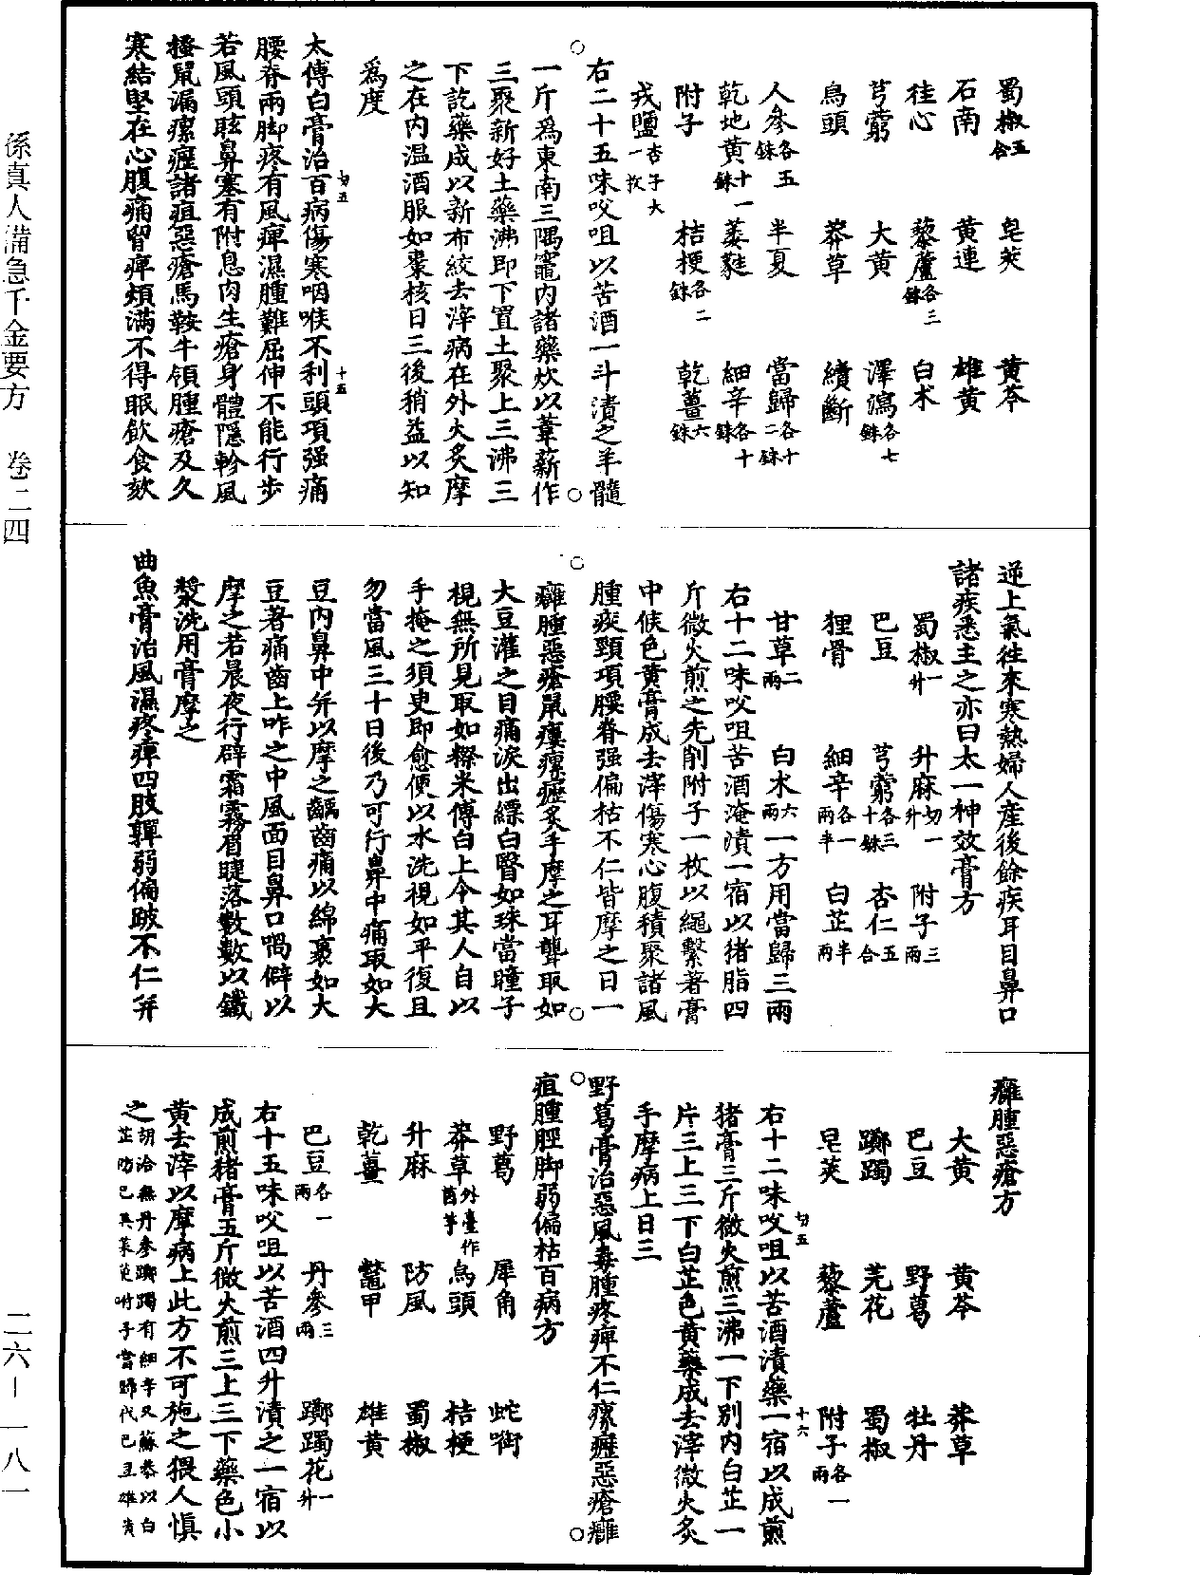 孫真人備急千金要方　卷二四
二六—一八一
蜀椒五合　皂莢　黃芩
石南　黃連　雄黃
桂心　藜蘆各三銖　白朮
芎藭　大黃　澤瀉各七銖
烏頭　莽草　續斷
人參各五銖　半夏　當歸各十二銖
乾地黃十一銖　葳蕤　細辛各十銖
附子　桔梗各二銖　乾薑六銖
戎鹽杏子大一枚
右二十五味㕮咀以苦酒一斗漬之羊髓
一斤爲東南三隅竈内諸藥炊以葦薪作
三聚新好土藥沸即下置土聚上三沸三
下訖藥成以新布絞去滓病在外火炙摩
之在内温酒服如棗核日三後稍益以知
爲度
太傅白膏治百病傷寒咽喉不利頭項强痛
腰脊兩脚疼有風痺濕腫難屈伸不能行步
若風頭眩鼻塞有附息肉生瘡身體隱軫風
搔鼠漏瘰癧諸疽惡瘡馬鞍牛領腫瘡及久
寒結堅在心腹痛胷痺煩滿不得眠飲食欬
逆上氣往來寒熱婦人產後餘疾耳目鼻口
諸疾悉主之亦曰太一神效膏方
蜀椒一升　升麻切一升　附子三兩
巴豆　芎藭各三十銖　杏仁五合
狸骨　細辛各一兩半　白芷半兩
甘草二兩　白朮六兩一方用當歸三兩
右十二味㕮咀苦酒淹漬一宿以猪脂四
斤微火煎之先削附子一枚以繩繫著膏
中候色黃膏成去滓傷寒心腹積聚諸風
腫疾頸項腰脊强偏枯不仁皆摩之日一
癰腫惡瘡鼠瘻瘰癧炙手摩之耳聾取如
大豆灌之目痛淚出縹白瞖如珠當瞳子
視無所見取如穄米傅白上令其人自以
手掩之須臾即愈便以水洗視如平復且
勿當風三十日後乃可行鼻中痛取如大
豆内鼻中并以摩之齲齒痛以綿裹如大
豆著痛齒上咋之中風面目鼻口喎僻以
摩之若晨夜行辟霜霧眉睫落數數以鐵
漿洗用膏摩之
曲魚膏治風濕疼痺四肢嚲弱偏跛不仁并
癰腫惡瘡方
大黃　黃芩　莽草
巴豆　野葛　牡丹
躑躅　芫花　蜀椒
皂莢　藜蘆　附子各一兩
右十二味㕮咀以苦酒漬藥一宿以成煎
猪膏三斤微火煎三沸一下别内白芷一
片三上三下白芷色黃藥成去滓微火炙
手摩病上日三
野葛膏治惡風毒腫疼痺不仁瘰癧惡瘡癰
疽腫脛脚弱偏枯百病方
野葛　犀角　蛇銜
莽草外臺作茵芋　烏頭　桔梗
升麻　防風　蜀椒
乾薑　鱉甲　雄黃
巴豆各一兩　丹參三兩　躑躅花一升
右十五味㕮咀以苦酒四升漬之一宿以
成煎猪膏五斤微火煎三上三下藥色小
黃去滓以摩病上此方不可施之猥人慎
之胡洽無丹參躑躅有細辛又蘇恭以白芷防已吳茱萸附子當歸代巴豆雄黃